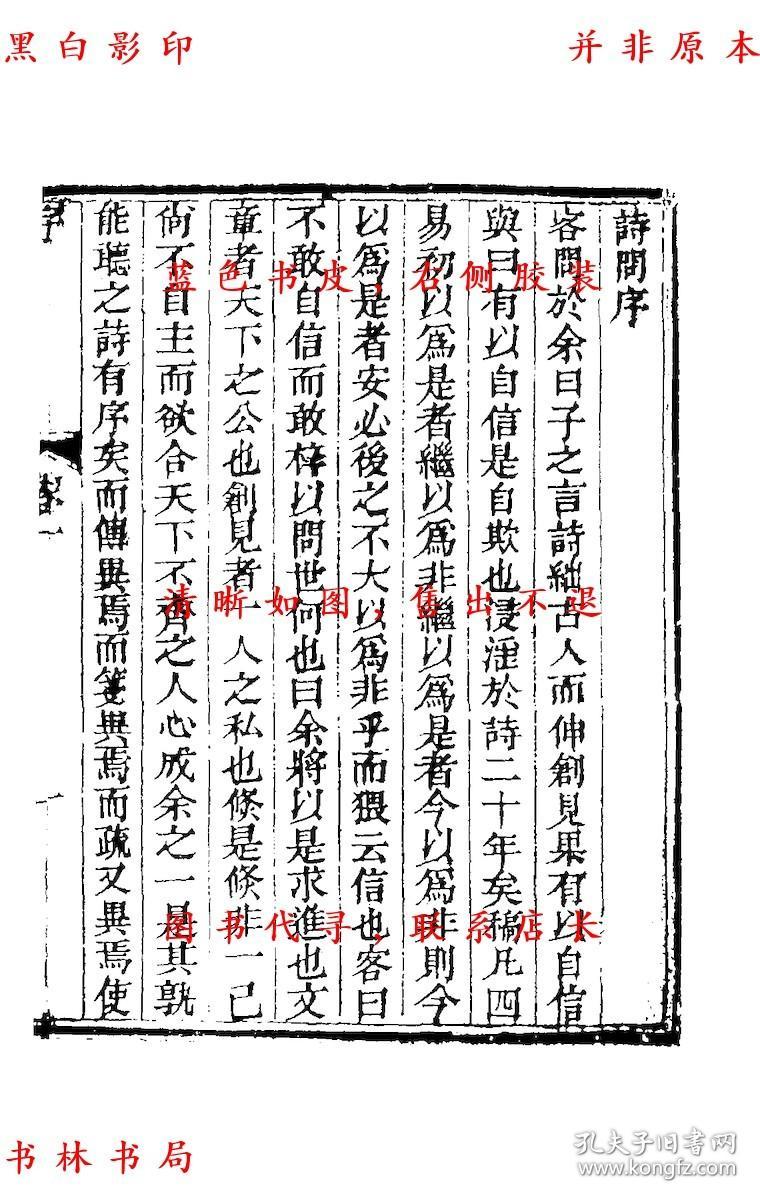 黑白影印
并非原本
詩問序
客問於余曰子之言詩絀古人而伸創見果有以自信
與曰有以自信是自欺也浸淫於詩二十年矣稿凡四
易初以為是者繼以為非繼以為是者今以為非則今
以為是者安必後之不大以為非乎而猥云信也客曰
不敢自信而敢梓以問世何也曰余將以是求進也文
章者天下之公也創見者一人之私也倐是倐非一己
尙不自主而欲合天下不齊之人心成余之一是其孰
能聽之詩有序矣而傳異焉而箋異焉而疏又異焉使
序
卷一
一
蓝色书皮,右侧胶装
清晰如图,售出不退
图书代寻,联系店长
书林书局
孔夫子旧书网
www.kongfz.com